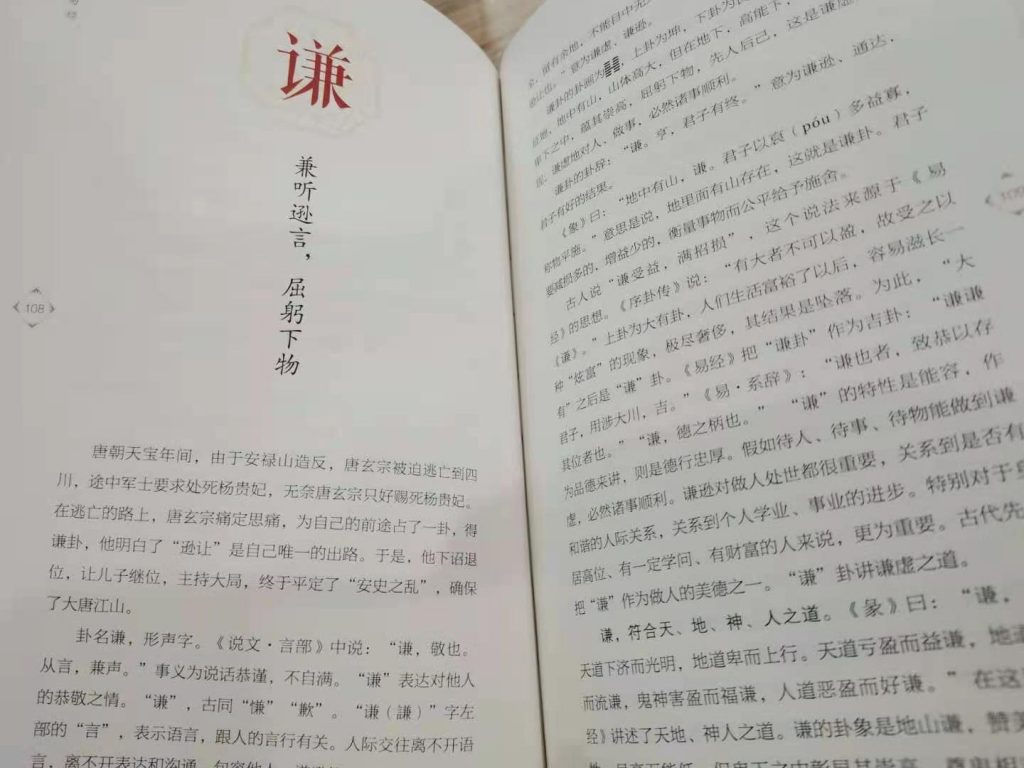 谦
兼听逊言，屈躬下物
108
唐朝天宝年间，由于安禄山造反，唐玄宗被迫逃亡到四
川，途中军士要求处死杨贵妃，无奈唐玄宗只好赐死杨贵妃。
在逃亡的路上，唐玄宗痛定思痛，为自己的前途占了一卦，得
谦卦，他明白了“逊让”是自己唯一的出路。于是，他下诏退
位，让儿子继位，主持大局，终于平定了“安史之乱”，确保
了大唐江山。
卦名谦，形声字。《说文·言部》中说：“谦，敬也。
从言，兼声。”事义为说话恭谨，不自满。“谦”表达对他人
的恭敬之情。“谦”，古同“慊”“歉”。“谦（謙）”字左
部的“言”，表示语言，跟人的言行有关。人际交往离不开语
言，离不开表达和沟通，包容他人
留有余地，不能目中无
”意为谦虚、谦逊。
谦卦的卦画为䷎，上卦为坤，下卦为艮
地，地中有山，山体高大，但在地下，高能下，
卑下之中，蕴其崇高，屈躬下物，先人后己，这是谦虚
谦虚地对人、做事，必然诸事顺利。
谦卦的卦辞：“谦。亨，君子有终。”意为谦逊、通达，
君子有好的结果。
《象》曰：“地中有山，谦。君子以裒（póu）多益寡，
称物平施。”意思是说，地里面有山存在，这就是谦卦。君子
要减损多的，增益少的，衡量事物而公平给予施舍。
古人说“谦受益，满招损”，这个说法来源于《易
经》的思想。《序卦传》说：“有大者不可以盈，故受之以
《谦》。”上卦为大有卦，人们生活富裕了以后，容易滋长一
种“炫富”的现象，极尽奢侈，其结果是坠落。为此，“大
有”之后是“谦”卦。《易经》把“谦卦”作为吉卦：“谦谦
君子，用涉大川，吉。”《易·系辞》：“谦也者，致恭以存
其位者也。”“谦，德之柄也。”“谦”的特性是能容，作
为品德来讲，则是德行忠厚。假如待人、待事、待物能做到谦
虚，必然诸事顺利。谦逊对做人处世都很重要，关系到是否有
和谐的人际关系，关系到个人学业、事业的进步。特别对于身
居高位、有一定学问、有财富的人来说，更为重要。古代先
把“谦”作为做人的美德之一。“谦”卦讲谦虚之道。
谦，符合天、地、神、人之道。《彖》曰：“谦，
天道下济而光明，地道卑而上行。天道亏盈而益谦，地道
而流谦，鬼神害盈而福谦，人道恶盈而好谦。”在这
经》讲述了天地、神人之道。谦的卦象是地山谦，赞美
109